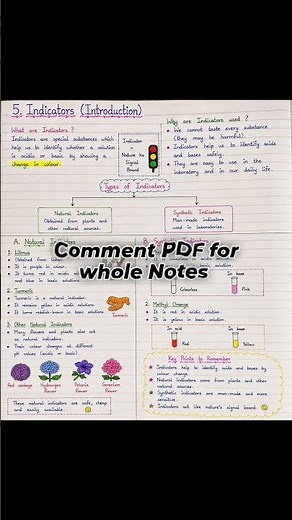 5. Indicators (Introduction)
What are Indicators ?
Indicators are special substances which
help us to identify whether a solution
is acidic or basic by showing a
change in colour.
Indicator
Nature ka
Signal
Board
Why are Indicators used ?
We cannot taste every substance
(they may be harmful).
Indicators help us to identify acids
and bases safely.
They are easy to use in the
laboratory and in our daily life.
Types of Indicators
Natural Indicators
Obtained from plants and
other natural sources.
Synthetic Indicators
Man-made indicators
used in laboratories.
Comment PDF for
whole Notes
A. Natural Indicators
1. Litmus
Obtained from
It is purple in colour.
and blue in basic solutions.
In base
Colourless
Pink
2. Turmeric
Turmeric is a natural indicator.
It remains yellow in acidic solutions
It turns reddish-brown in basic solutions
Turmeric
3. Other Natural Indicators
Many flowers and plants also act
as natural indicators.
Their colour changes at different
pH values (acidic or basic).
Red cabbage
Hydrangea
flower
Petunia
flower
Geranium
flower
These natural indicators are safe, cheap
and easily available.
2. Methyl Orange
It is red in acidic solution.
It is yellow in basic solution.
In acid
In base
Red
Yellow
Key Points to Remember
Indicators help to identify acids and bases by
colour change.
Natural indicators come from plants and other
natural sources.
Synthetic indicators are man-made and more
sensitive.
Indicators act like nature's signal board.